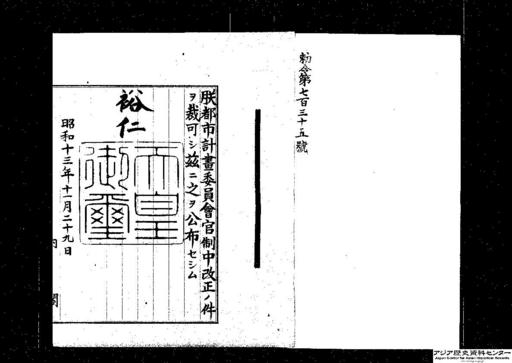 勅令第七百三十五號
朕都市計畫委員會官制中改正ノ件
ヲ裁可シ茲ニ之ヲ公布セシム
裕仁
天皇御璽
昭和十三年十一月二十九日
内閣
アジア歴史資料センター
Japan Center for Asian Historical Records